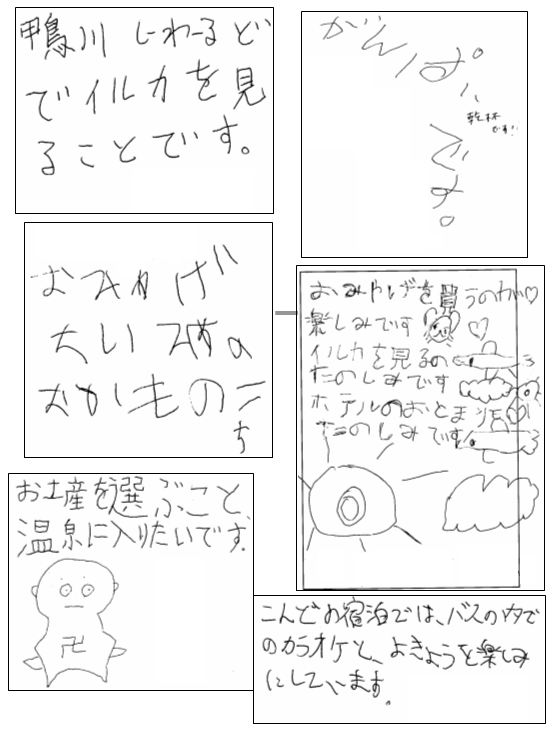 鴨川しーわーるど
でイルカを見
ることです。
かんぱい
です。
乾杯
です!
おみやげ
たいづめの
おかもの
こち
おみやげを買うのが♡
楽しみです ♡
イルカを見るの
たのしみです
ホテルのおとまりも
たのしみです
お土産を選ぶこと、
温泉に入りたいです。
卍
こんどお宿泊では、バスの内で
のカラオケと、よきょうを楽しみ
にしています。